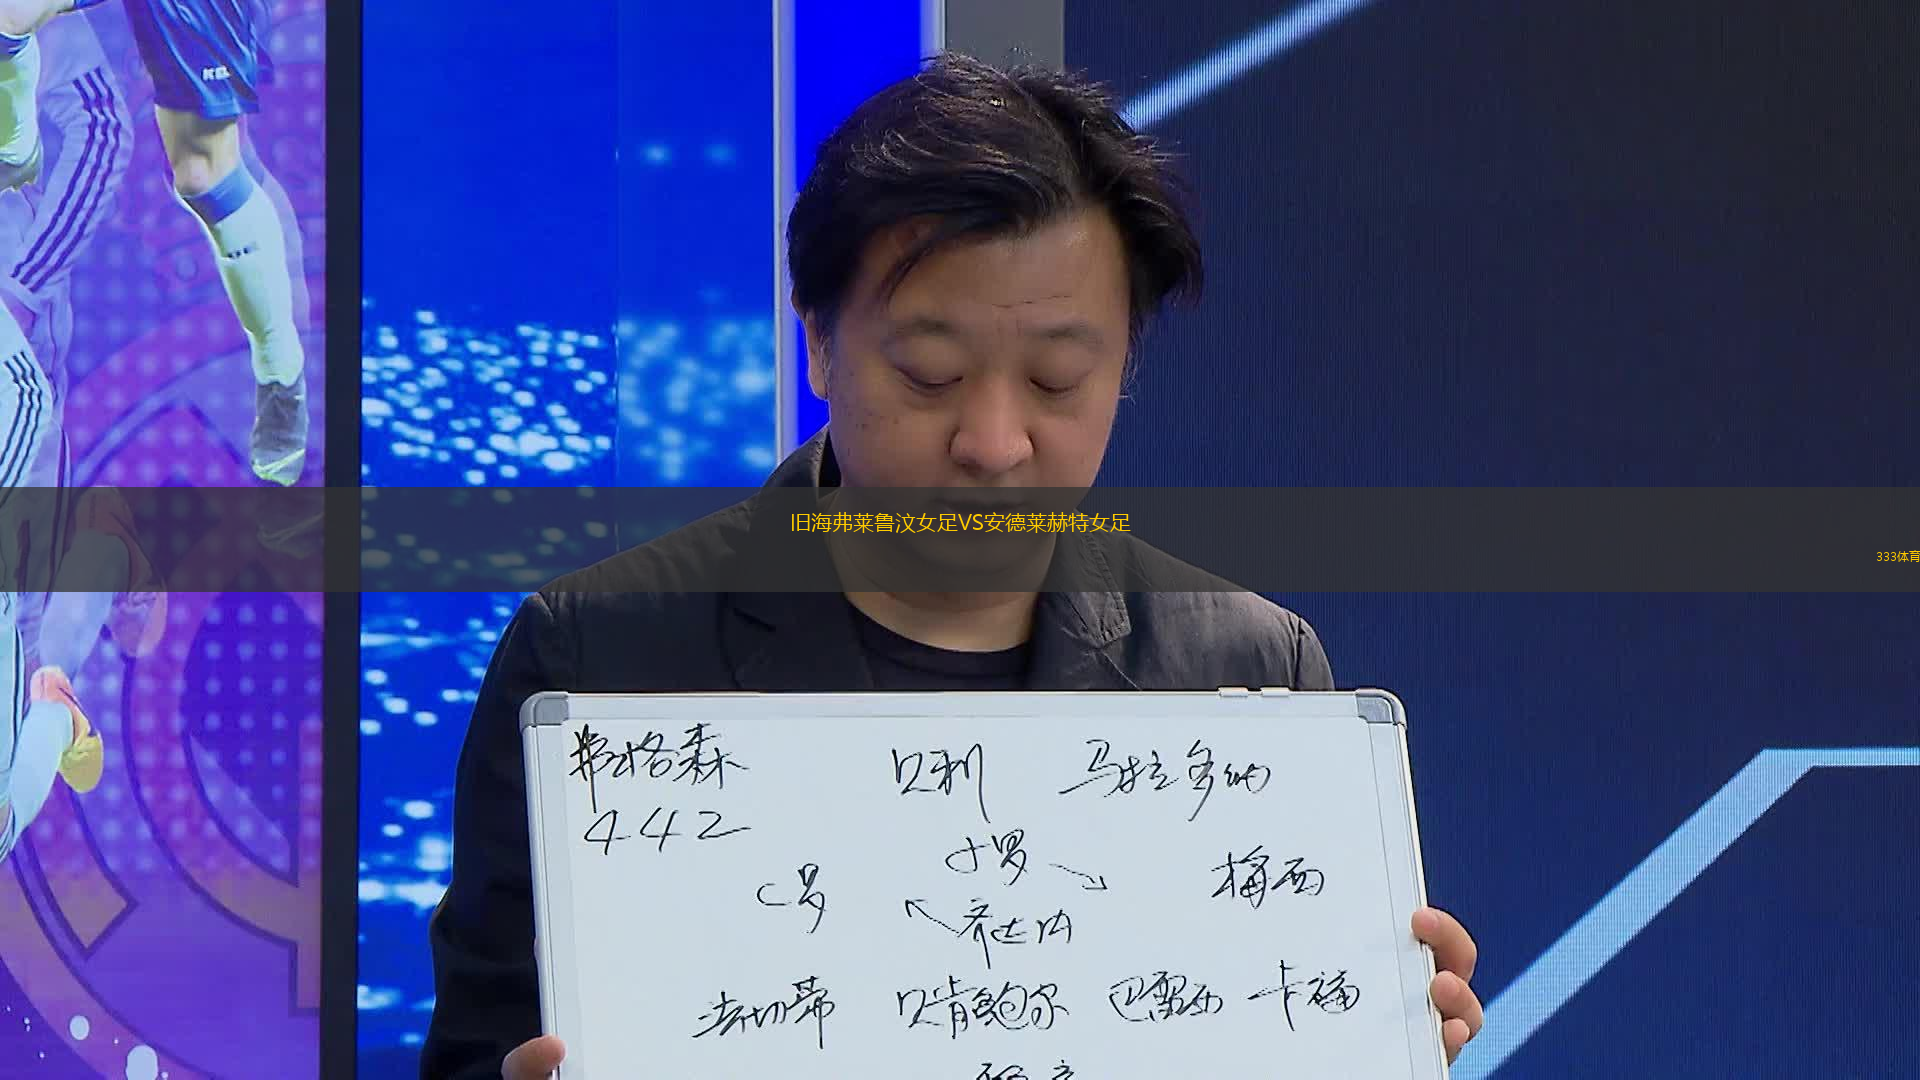 KEL
旧海弗莱鲁汶女足VS安德莱赫特女足
333体育
弗格森 贝利 马拉多纳
442
小罗
C罗 梅西
齐达内
法切蒂 贝肯鲍尔 巴雷西 卡福